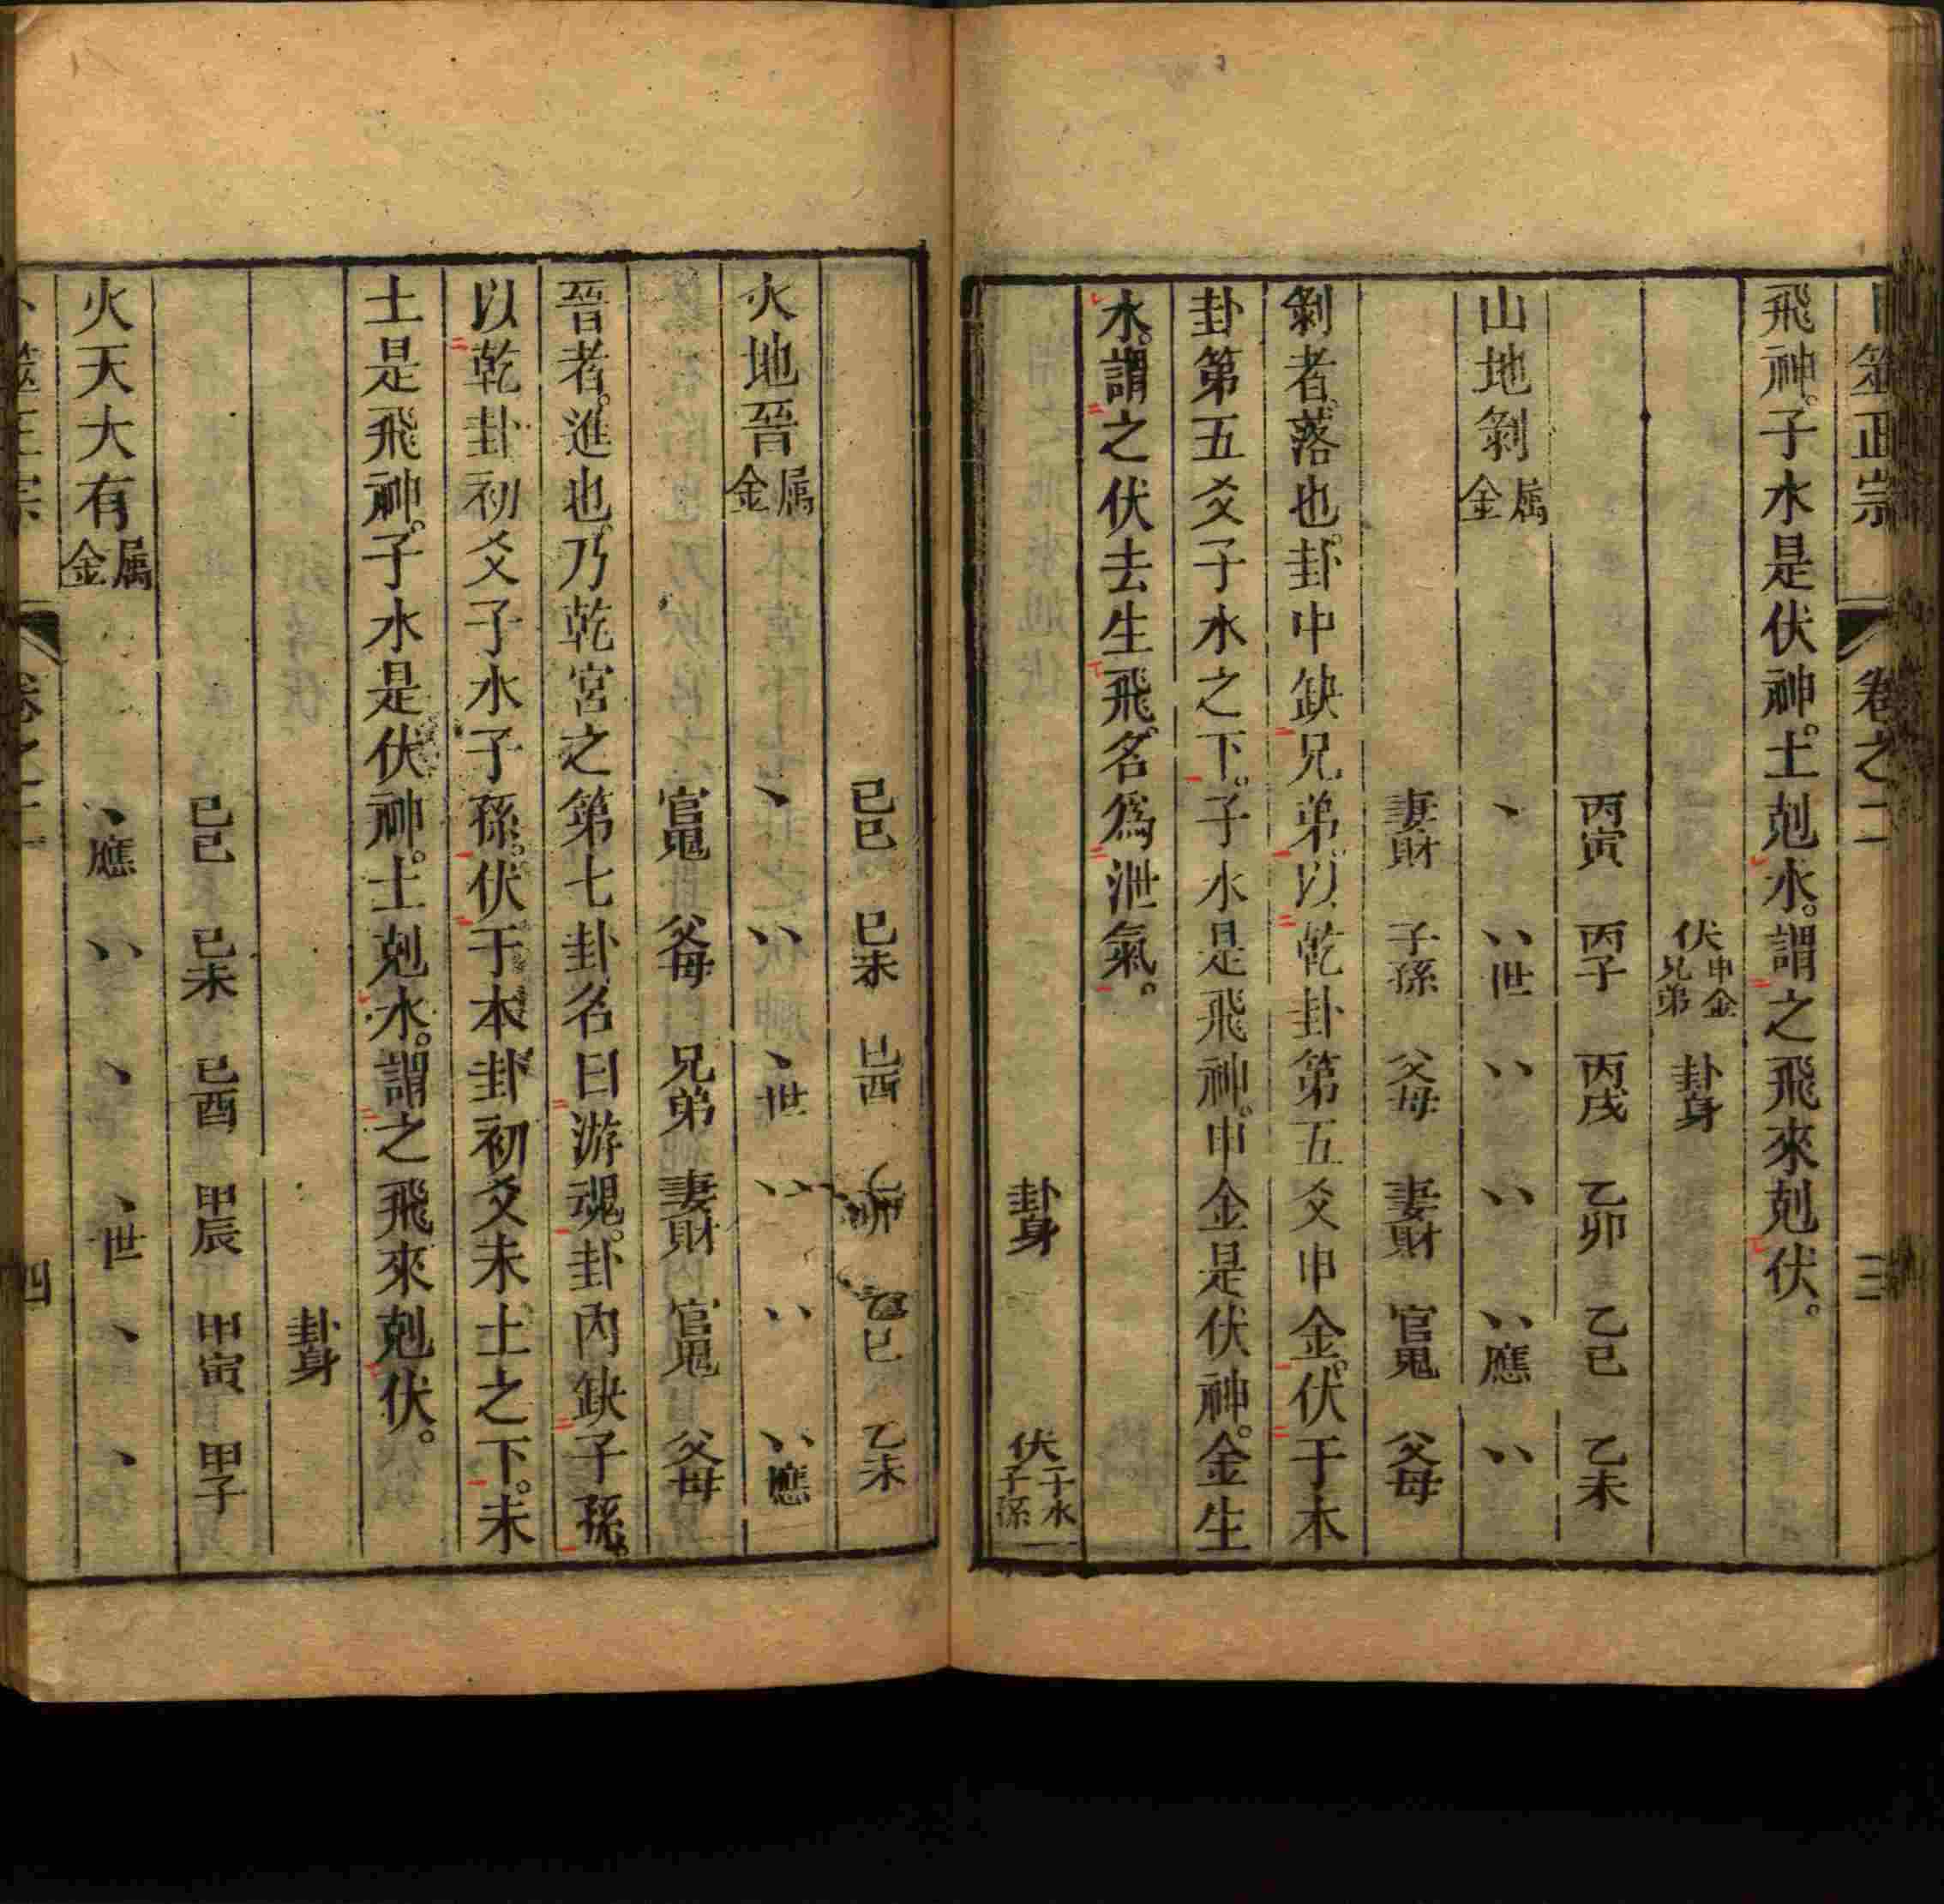 卜筮正宗 卷之二 三
飛神。子水是伏神。土剋水。謂之飛來剋伏。
伏申金兄弟 卦身
丙寅 丙子 丙戌 乙卯 乙巳 乙未
山地剝屬金 、 、、世 、、 、、 、、應 、、
妻財 子孫 父母 妻財 官鬼 父母
剝者。落也。卦中缺兄弟。以乾卦第五爻申金。伏于本
卦第五爻子水之下。子水是飛神。申金是伏神。金生
水。謂之伏去生飛。名爲泄氣。
卦身 伏子水子孫
己巳 己未 己酉 乙卯 乙巳 乙未
火地晉屬金 、 、、 、世 、、 、、 、、應
官鬼 父母 兄弟 妻財 官鬼 父母
晉者。進也。乃乾宮之第七卦。名曰游魂。卦內缺子孫。
以乾卦初爻子水子孫。伏于本卦初爻未土之下。未
土是飛神。子水是伏神。土剋水。謂之飛來剋伏。
卦身
己巳 己未 己酉 甲辰 甲寅 甲子
火天大有屬金 、應 、、 、 、世 、 、
卜筮正宗 卷之二 四